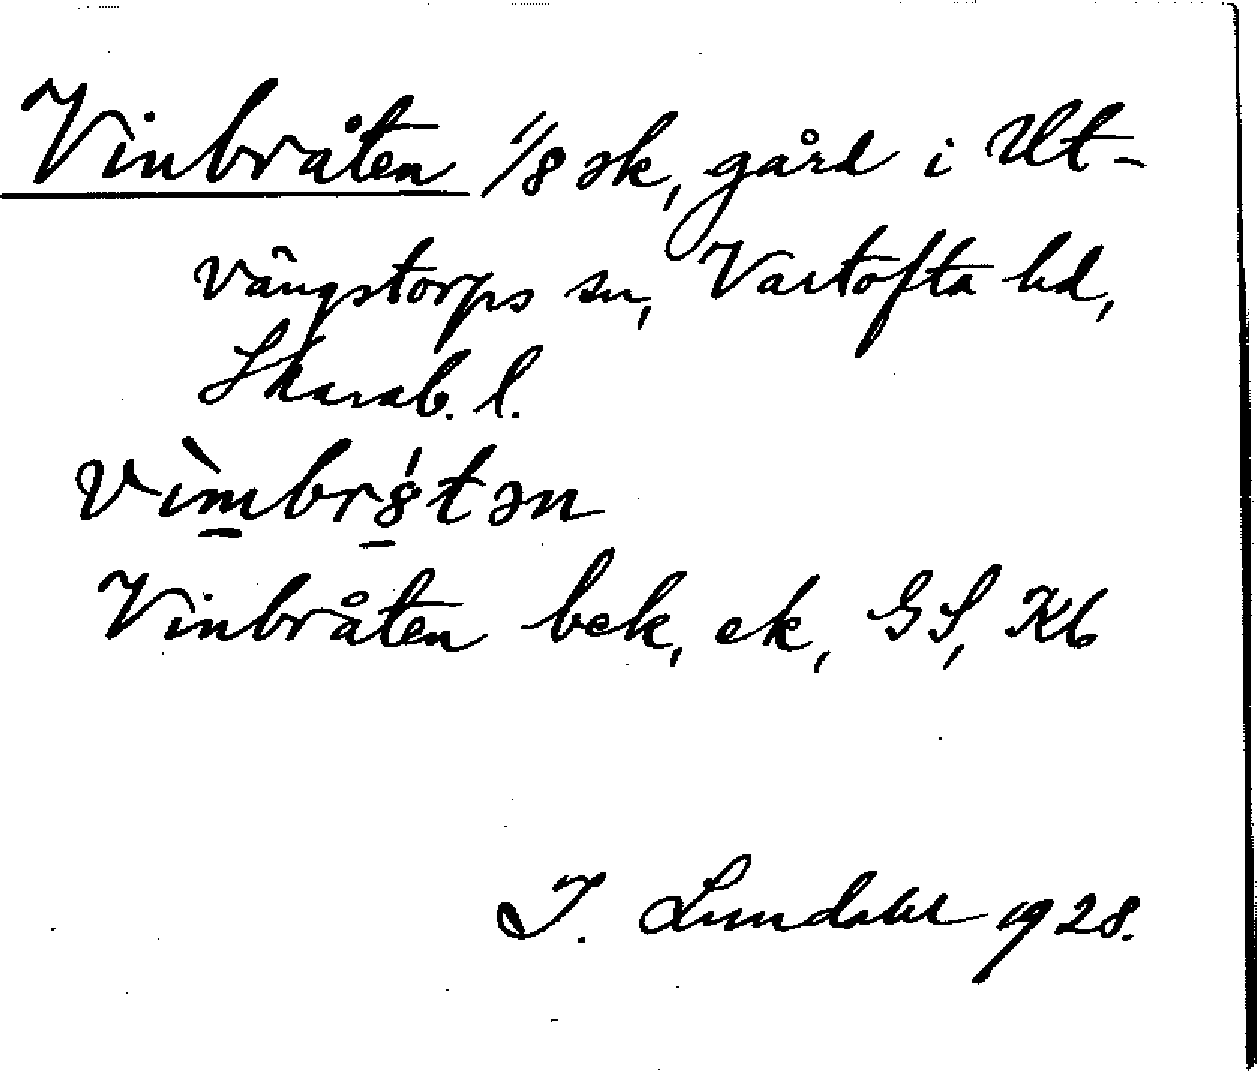 Vinbråten 1/8 sk, gård i Ut-
vängstorps sn, Vartofta hd,
Skarab. l.
vìmbr8́tən
Vinbråten bek, ek, GS, Kb
I. Lundahl 1928.